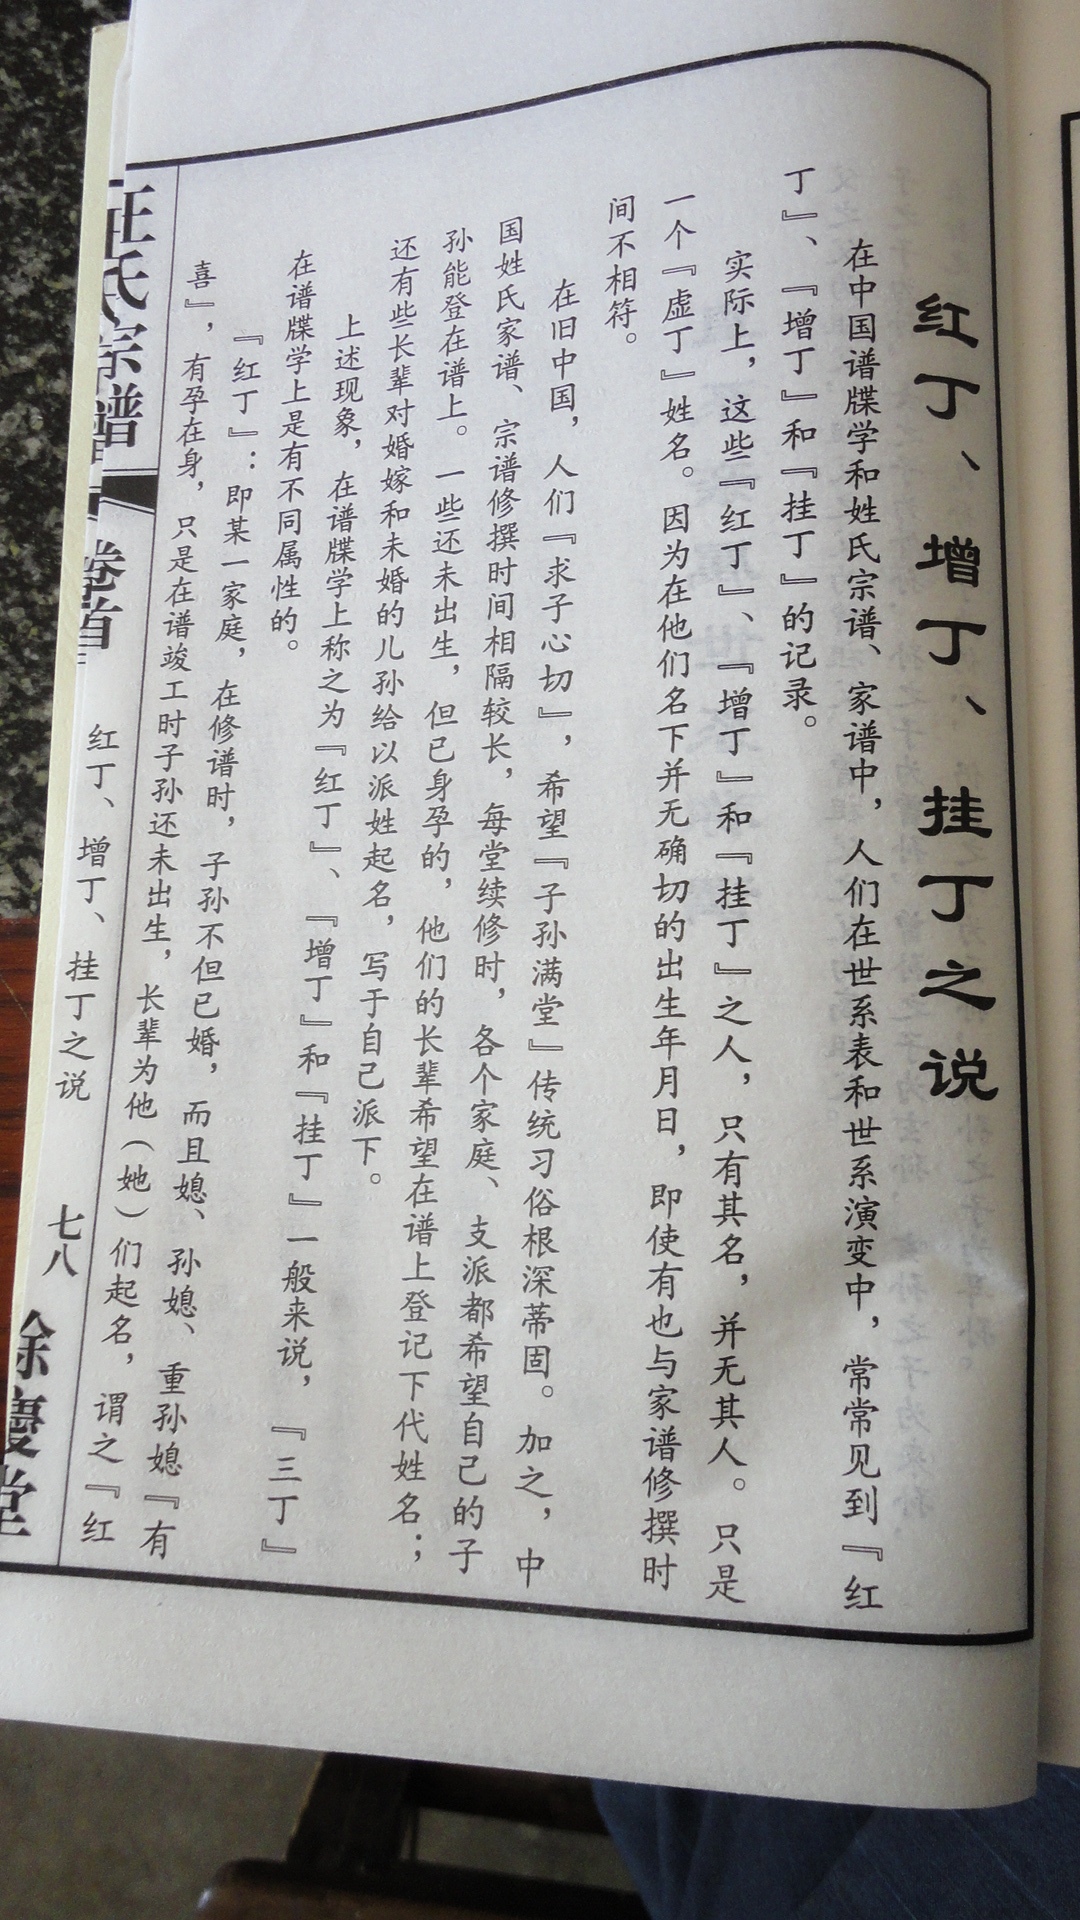 红丁、增丁、挂丁之说
在中国谱牒学和姓氏宗谱、家谱中，人们在世系表和世系演变中，常常见到『红
丁』、『增丁』和『挂丁』的记录。
实际上，这些『红丁』、『增丁』和『挂丁』之人，只有其名，并无其人。只是
一个『虚丁』姓名。因为在他们名下并无确切的出生年月日，即使有也与家谱修撰时
间不相符。
在旧中国，人们『求子心切』，希望『子孙满堂』传统习俗根深蒂固。加之，中
国姓氏家谱、宗谱修撰时间相隔较长，每堂续修时，各个家庭、支派都希望自己的子
孙能登在谱上。一些还未出生，但已身孕的，他们的长辈希望在谱上登记下代姓名；
还有些长辈对婚嫁和未婚的儿孙给以派姓起名，写于自己派下。
上述现象，在谱牒学上称之为『红丁』、『增丁』和『挂丁』一般来说，『三丁』
在谱牒学上是有不同属性的。
『红丁』：即某一家庭，在修谱时，子孙不但已婚，而且媳、孙媳、重孙媳『有
喜』，有孕在身，只是在谱竣工时子孙还未出生，长辈为他（她）们起名，谓之『红
汪氏宗谱 卷首
红丁、增丁、挂丁之说
七八
馀慶堂